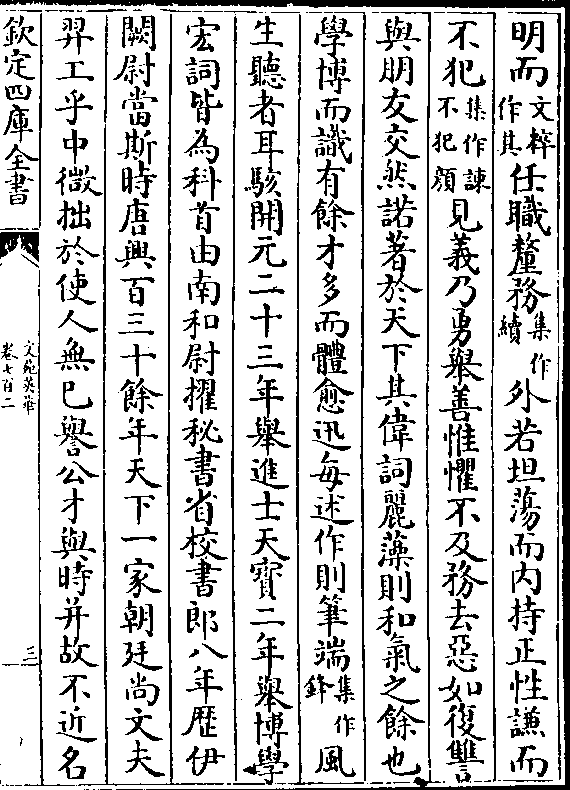 明而文粹作其任職釐務集作績外若坦蕩而内持正性謙而
不犯集作諫不犯顔見義乃勇舉善惟懼不及務去惡如復讐
與朋友交然諾著於天下其偉詞麗藻則和氣之餘也
學博而識有餘才多而體愈迅每述作則筆端集作鋒風
生聽者耳駭開元二十三年舉進士天寶二年舉博學
宏詞皆為科首由南和尉擢秘書省校書郎八年歴伊
闕尉當斯時唐興百三十餘年天下一家朝廷尚文夫
羿工乎中微拙於使人無已譽公才與時并故不近名
欽定四庫全書
文苑英華
卷七百二
三